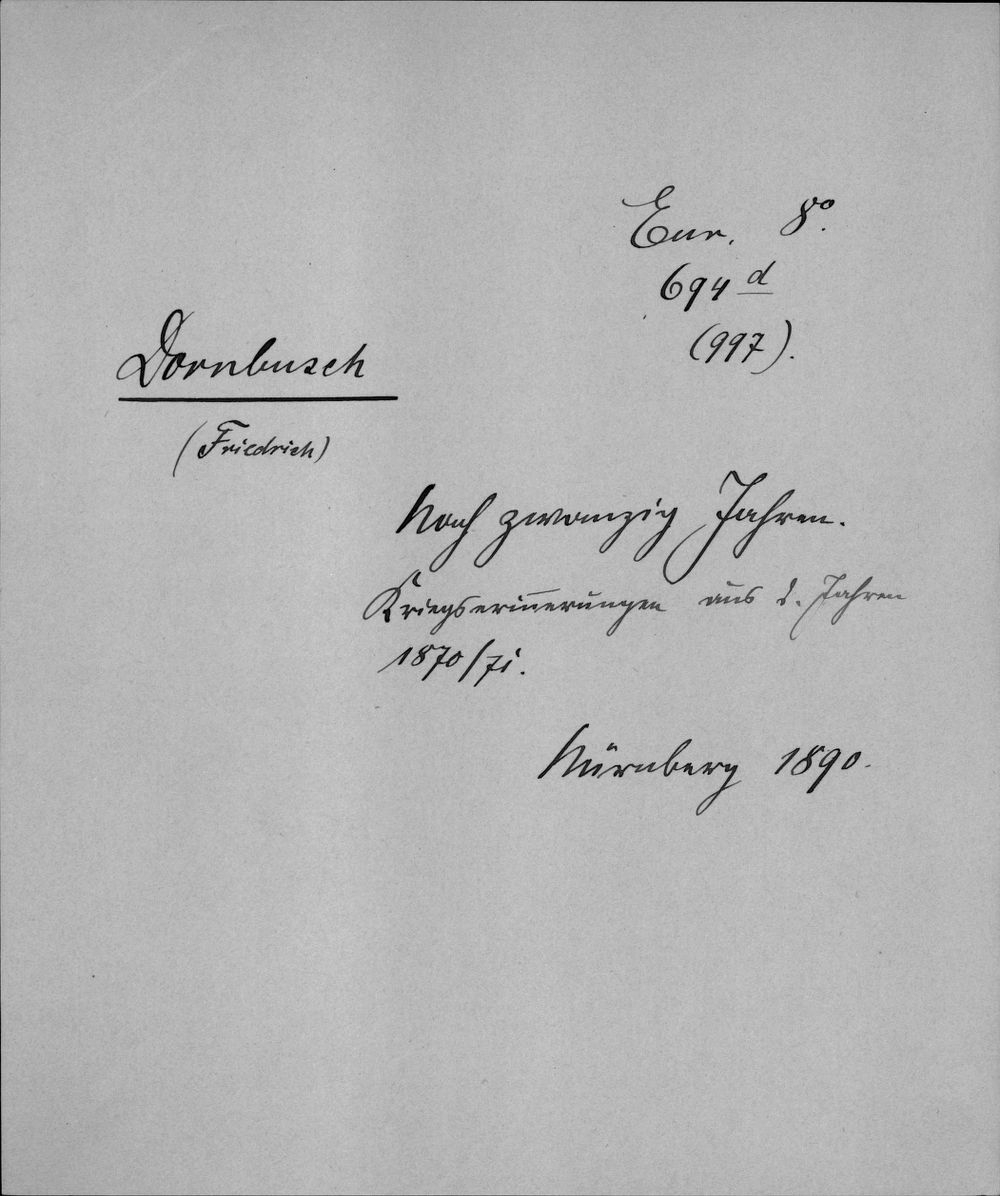 Eur. 8°.
694 d
(997).
Dornbusch
(Friedrich)
Nach zwanzig Jahren.
Kriegserinnerungen aus d. Jahren
1870/71.
Nürnberg 1890.